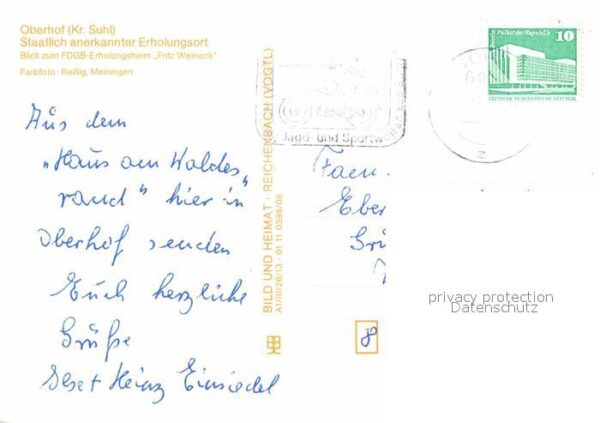 Oberhof (Kr. Suhl)
Staatlich anerkannter Erholungsort
Blick zum FDGB-Erholungsheim „Fritz Weineck"
Farbfoto: Reißig, Meiningen
Berlin Palast der Republik
10
DEUTSCHE DEMOKRATISCHE REPUBLIK
Jagd- und Sportwaffen
z
Aus dem
„Haus am Waldes
rand" hier in
Oberhof senden
Euch herzliche
Grüße
Heinz Einsiedel
BILD UND HEIMAT · REICHENBACH (VOGTL)
A1/III/26/13 · 01 11 0395/08
Fam.
Eber
Grü
8
privacy protection
Datenschutz